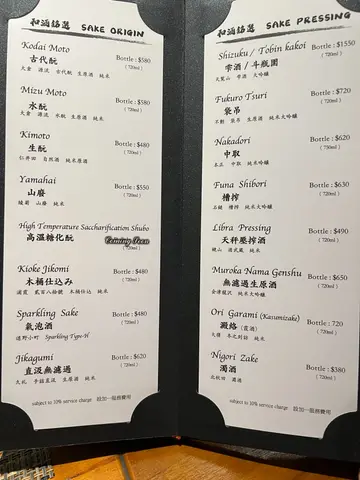 和酒銘選 SAKE ORIGIN
Kodai Moto
古代酛
Bottle : $580
( 720ml )
大倉 源流 古代酛 生原酒 純米
Mizu Moto
水酛
Bottle : $580
( 720ml )
大倉 源流 水酛 生原酒 純米
Kimoto
生酛
Bottle : $480
( 720ml )
仁井田 自然酒 純米原酒
Yamahai
山廢
Bottle : $550
( 720ml )
山廢 純米
High Temperature Saccharification Shubo
高溫糖化酛
Coming Soon
Kioke Jikomi
木桶仕込み
Bottle : $480
( 720ml )
木桶仕込 純米
Sparkling Sake
氣泡酒
Bottle : $480
( 720ml )
遠野小町 Sparkling Type-H
Jikagumi
直汲無濾過
Bottle : $620
( 720ml )
生原酒 純米
subject to 10% service charge 設加一服務費用
和酒銘選 SAKE PRESSING
Shizuku / Tobin kakoi
雫酒 / 斗瓶囲
Bottle : $1550
( 720ml )
雫酒 大吟釀
Fukuro Tsuri
袋吊
Bottle : $720
( 720ml )
不動 袋吊 生原酒 純米大吟釀
Nakadori
中取
Bottle : $620
( 750ml )
中取 純米吟釀
Funa Shibori
槽搾
Bottle : $630
( 720ml )
槽搾 純米大吟釀
Libra Pressing
天秤壓搾酒
Bottle : $490
( 720ml )
純米
Muroka Nama Genshu
無濾過生原酒
Bottle : $650
( 720ml )
会津龍沢 純米大吟釀
Ori Garami (Kasumizake)
澱絡 (霞酒)
Bottle : 720
( 720ml )
純米大吟釀
Nigori Zake
濁酒
Bottle : $380
( 720ml )
北秋田 濃濁
subject to 10% service charge 設加一服務費用